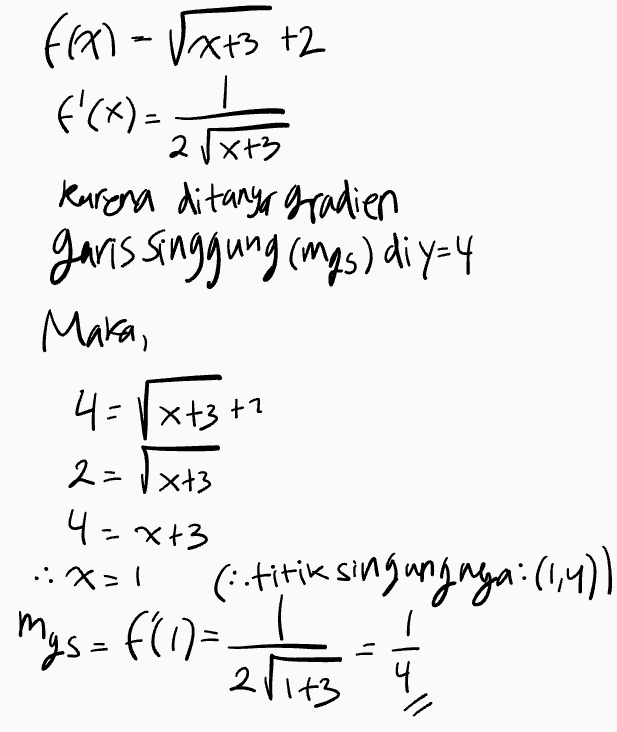 f(x) = √(x+3) + 2
f'(x) = 1/(2√(x+3))
Karena ditanya gradien
garis singgung (mgs) di y=4
Maka,
4 = √(x+3) + 2
2 = √(x+3)
4 = x+3
∴ x = 1 (∴ titik singungnya: (1,4))
mgs = f'(1) = 1/(2√(1+3)) = 1/4